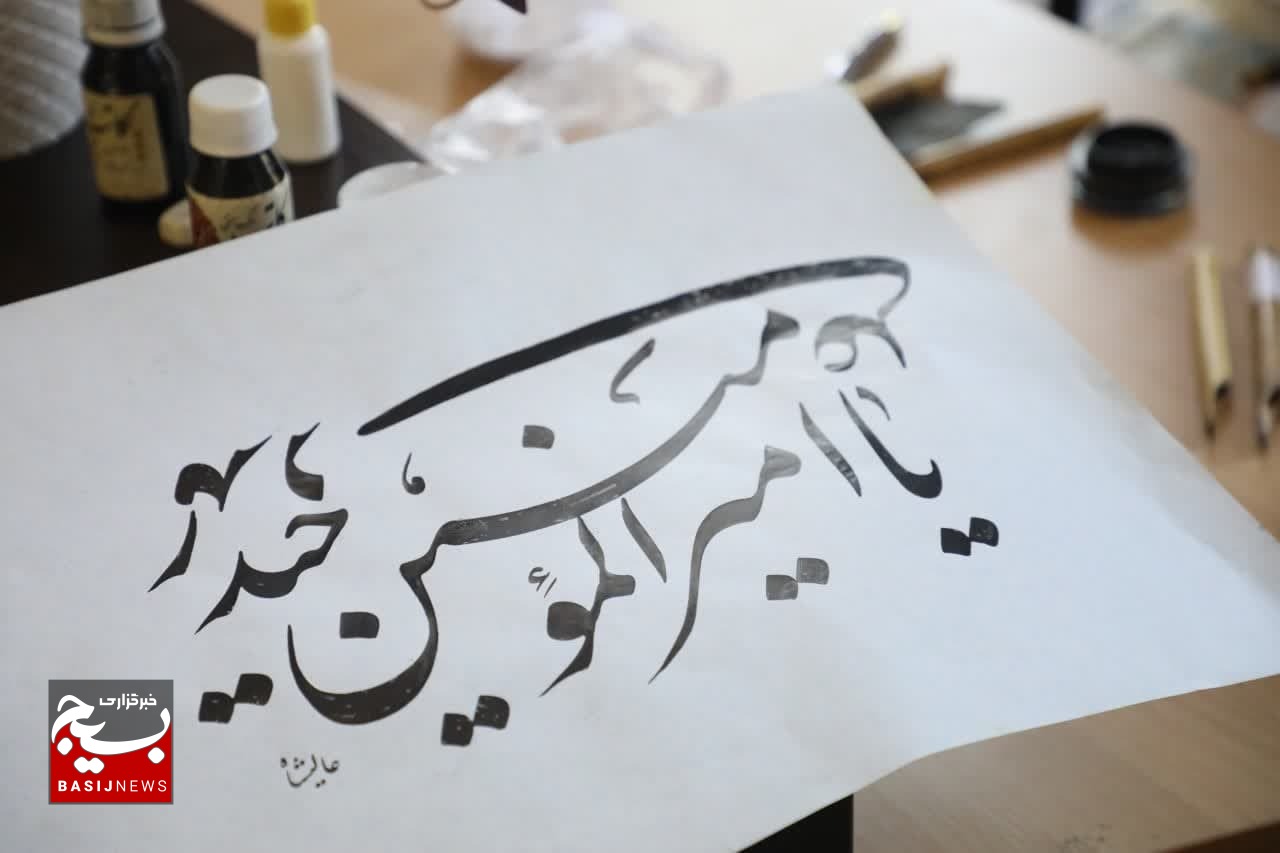 یا امیر المؤمنین حیدر
عالیشاه
کاتب
خبرگزاری
بسیج
BASIJNEWS